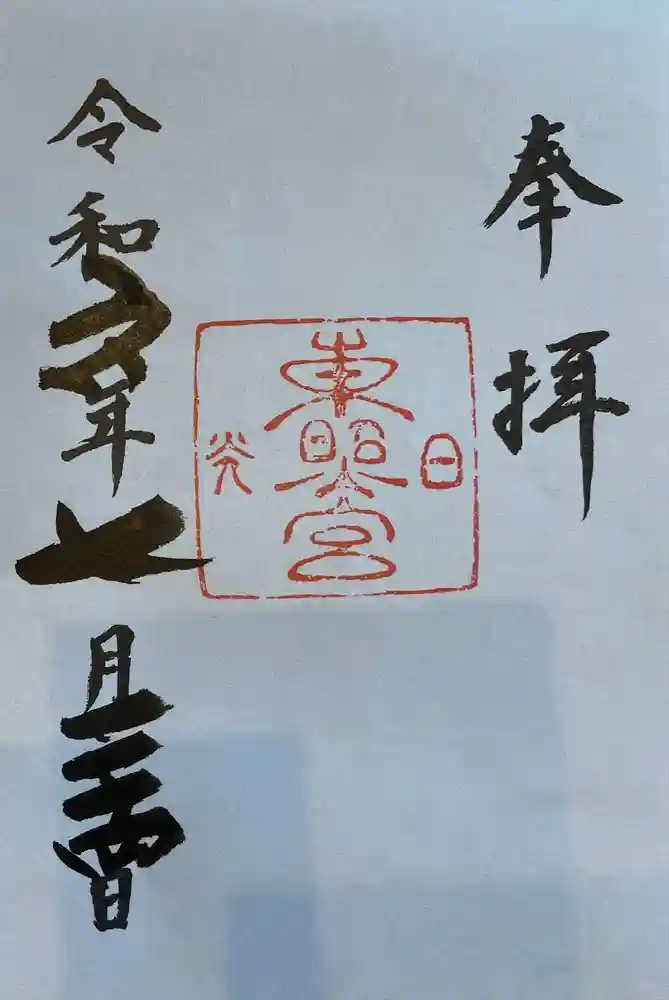 奉拝
日光
東照宮
令和年七月日